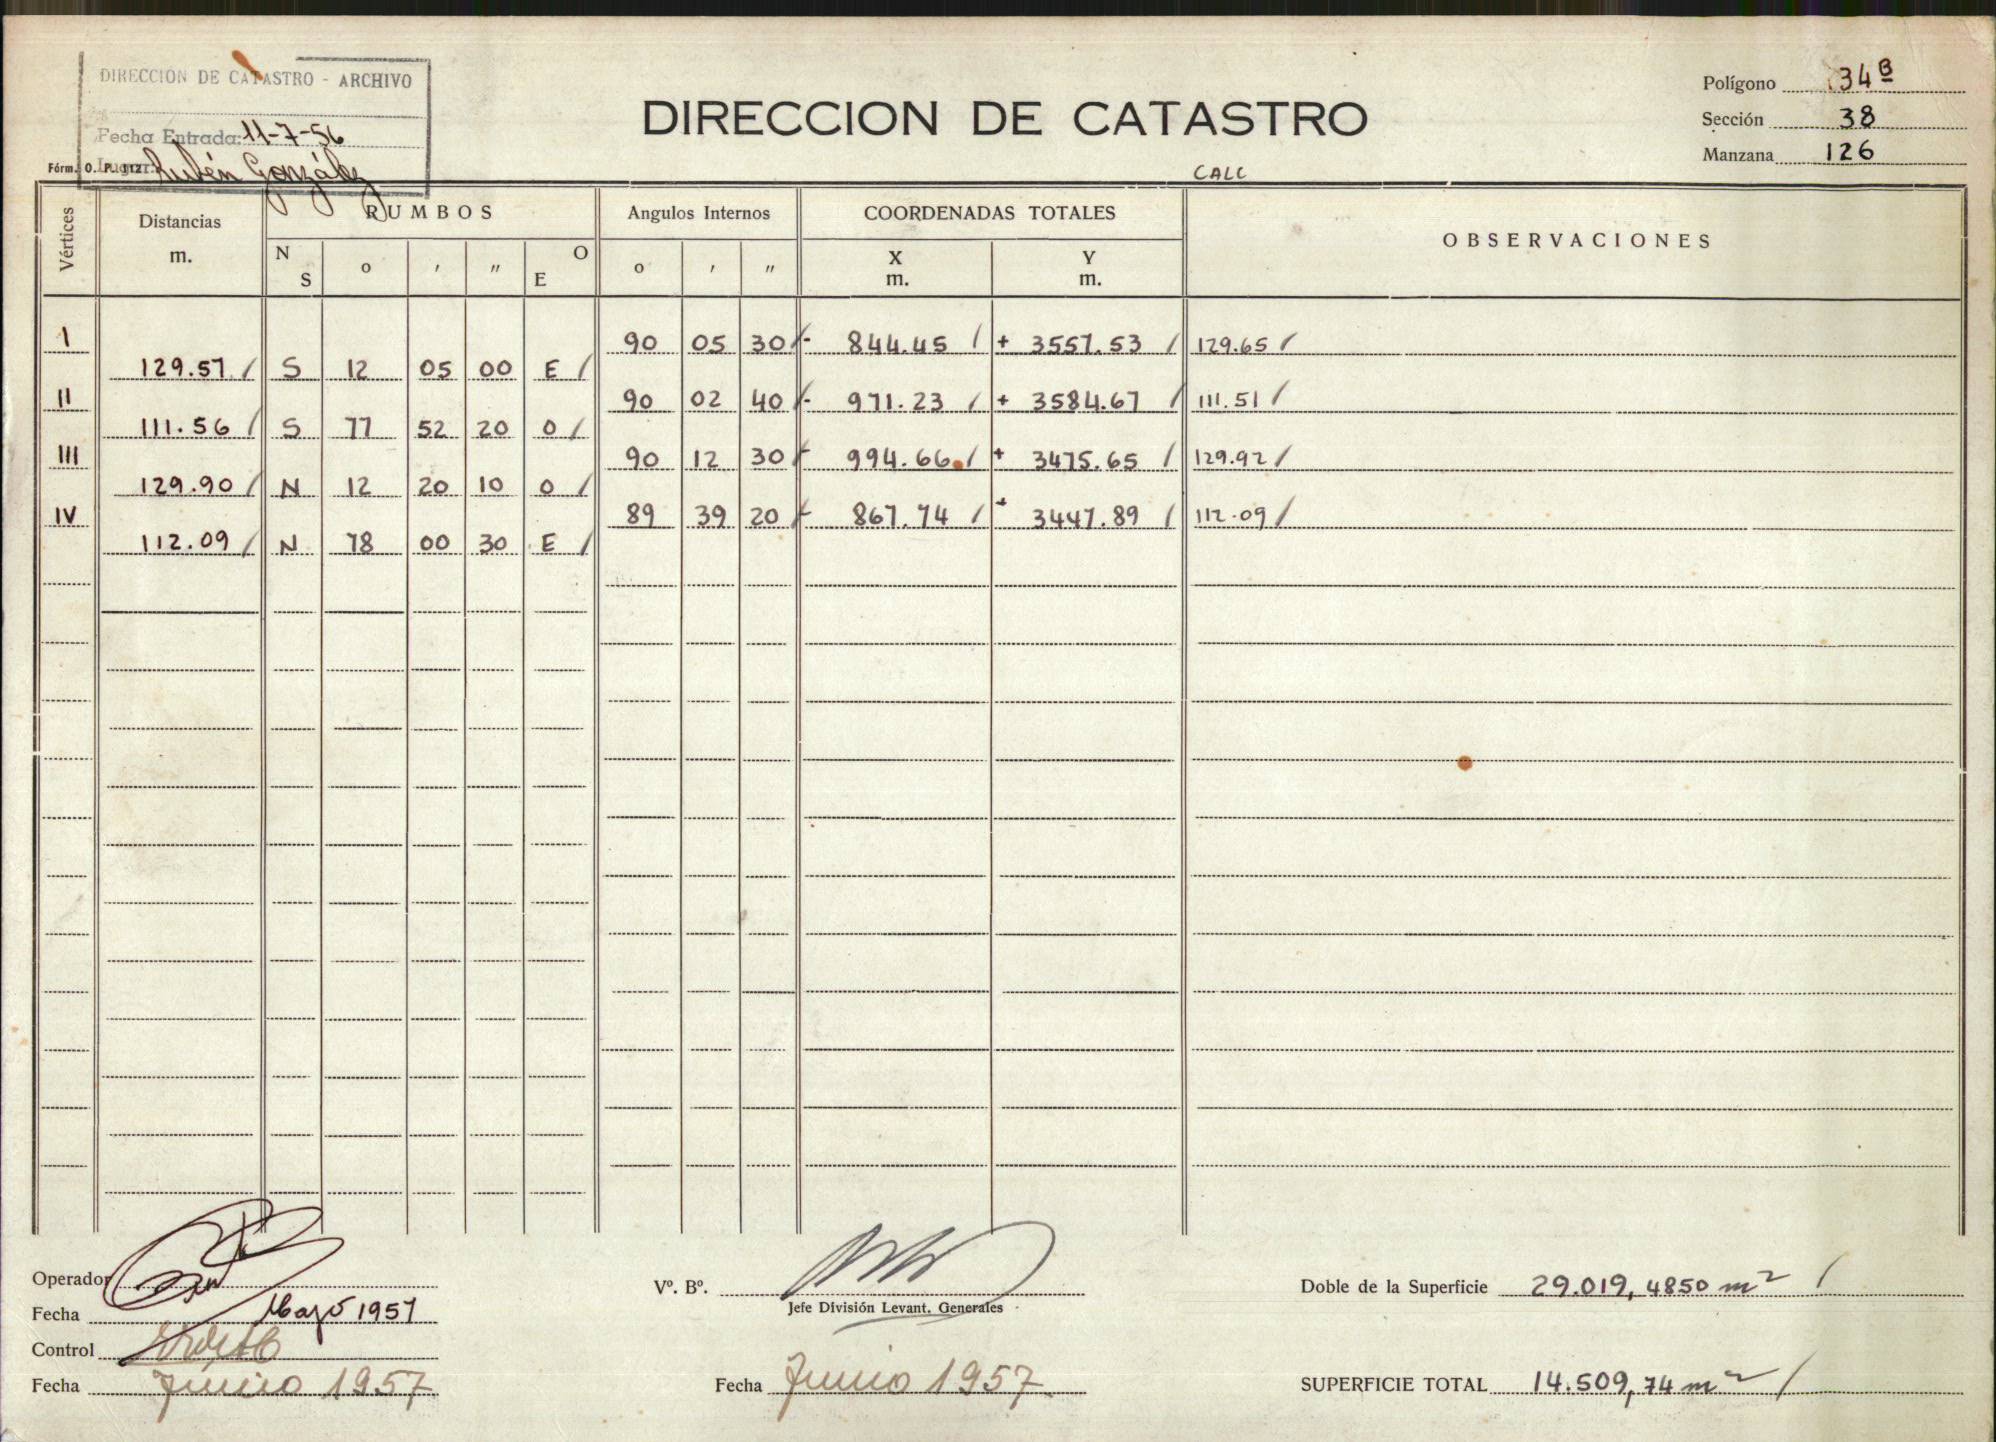 DIRECCIÓN DE CATASTRO - ARCHIVO
Fecha Entrada: 11-7-56
Lugar: Rubén González
Fórm. O. P. 112
DIRECCION DE CATASTRO
CALC
Polígono 34 B
Sección 38
Manzana 126
Vértices Distancias m. RUMBOS Angulos Internos COORDENADAS TOTALES OBSERVACIONES
N S o ′ ″ O E o ′ ″ X m. Y m.
I 90 05 30 - 844.45 + 3557.53 129.65
129.57 S 12 05 00 E
II 90 02 40 - 971.23 + 3584.67 111.51
111.56 S 77 52 20 O
III 90 12 30 - 994.66 + 3475.65 129.92
129.90 N 12 20 10 O
IV 89 39 20 - 867.74 + 3447.89 112.09
112.09 N 78 00 30 E
Operador
Fecha Mayo 1957
Control
Fecha Junio 1957
Vº. Bº.
Jefe División Levant. Generales
Fecha Junio 1957
Doble de la Superficie 29.019,4850 m2
SUPERFICIE TOTAL 14.509,74 m2